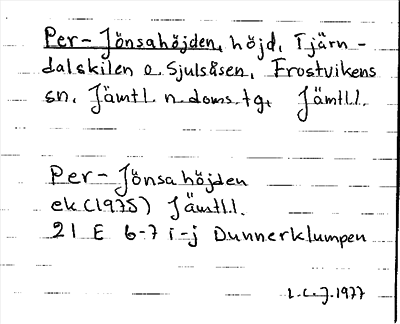 Per-Jönsahöjden, höjd, Tjärn-
dalskilen o. Sjulsåsen, Frostvikens
sn. Jämtl. n. doms. tg. Jämtl.l.
Per-Jönsahöjden
ek (1975) Jämtl.l.
21 E 6-7 i-j Dunnerklumpen
L.C.J. 1977